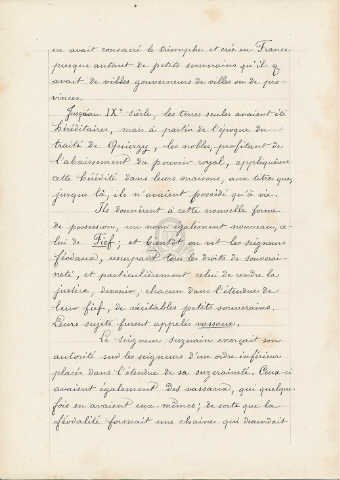 en avait consacré le triomphe et créé en France
presque autant de petits souverains qu'il y
avait de villes gouverneurs de villes ou de pro-
vinces.
Jusqu'au IXe siècle, les terres seules avaient été
héréditaires, mais à partir de l'époque du
traité de Quierzy, les nobles, profitant de
l'abaissement du pouvoir royal, appliquèrent
cette hérédité dans leurs maisons, aux titres que,
jusque là, ils n'avaient possédé qu'à vie.
Ils donnèrent à cette nouvelle forme
de possession, un nom également nouveau, ce
lui de Fief; et bientôt on vit les seigneurs
féodaux, usurpant tous les droits de souverai-
neté, et particulièrement celui de rendre la
justice, devenir, chacun dans l'étendue de
leur fief, de véritables petits souverains.
Leurs sujets furent appelés vassaux.
Le seigneur suzerain exerçait son
autorité sur les seigneurs d'un ordre inférieur
placés dans l'étendue de sa suzeraineté. Ceux-ci
avaient également des vassaux, qui quelque
fois en avaient eux-mêmes; de sorte que la
féodalité formait une chaîne qui descendait